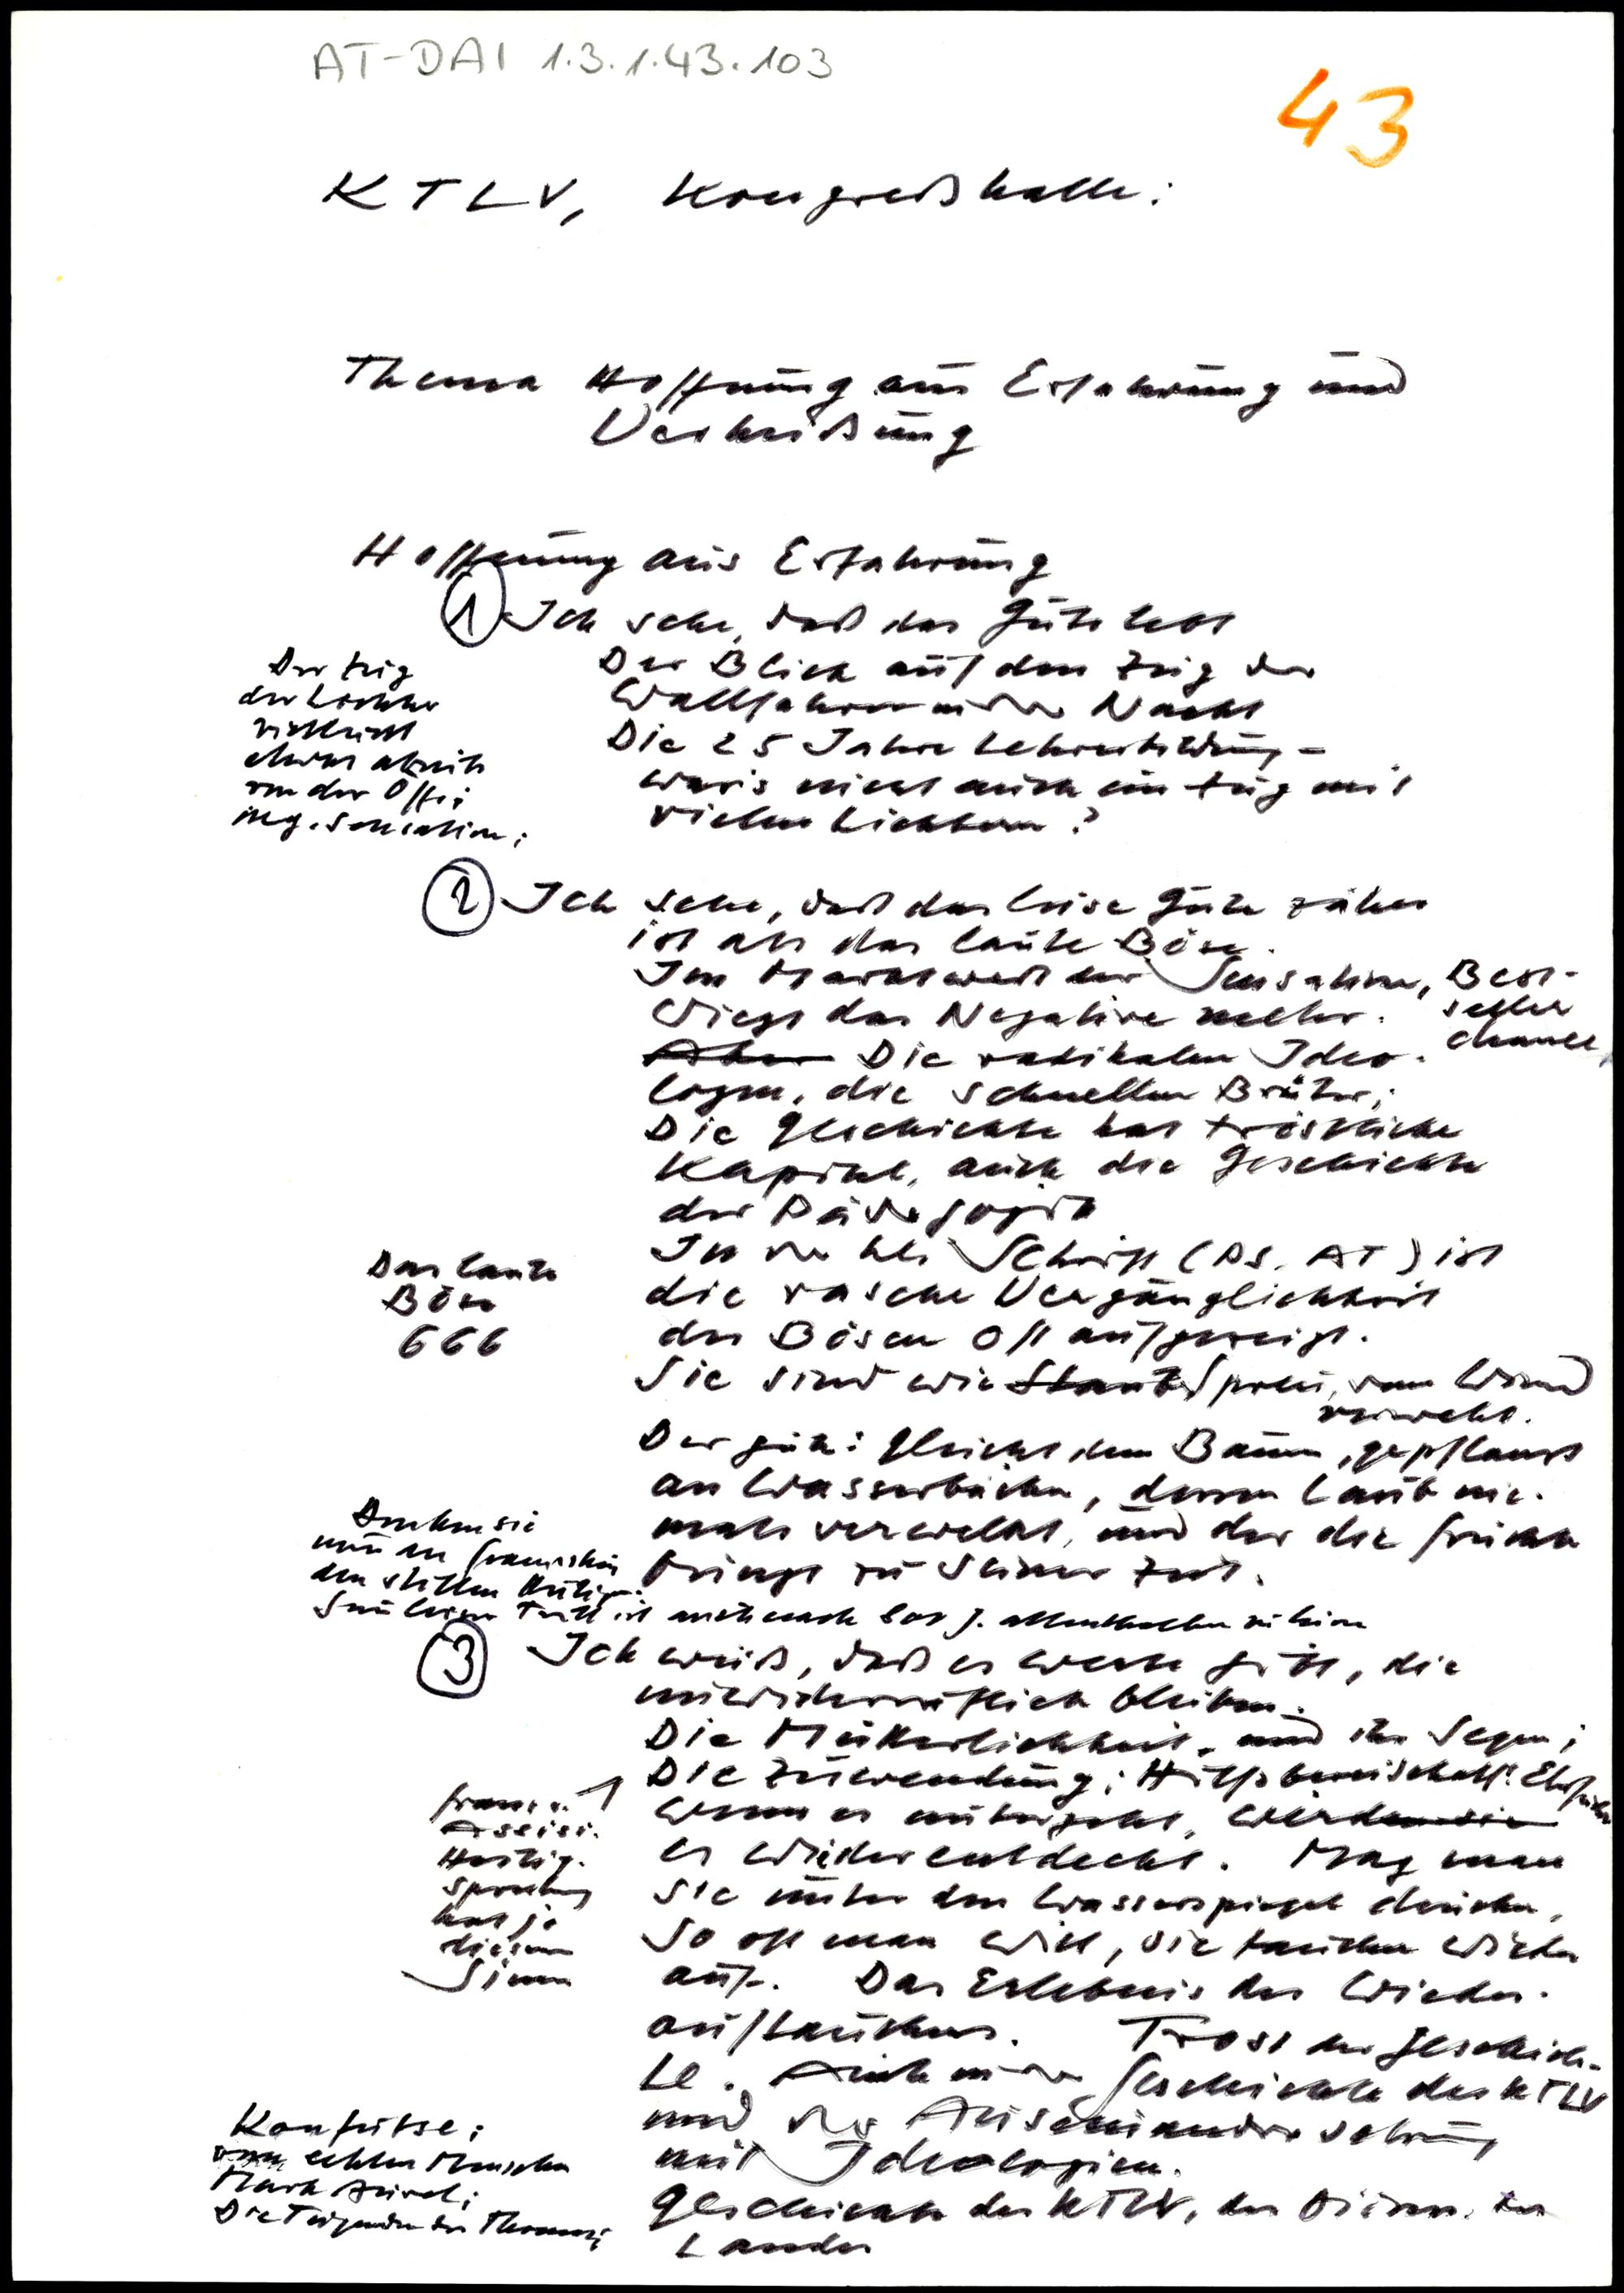 AT-DAI 1.3.1.43.103
43
KTLV, Kongreßhalle:
Thema Hoffnung aus Erfahrung und
Verheißung
Hoffnung aus Erfahrung
① Ich sehe, daß das Gute lebt
Der Zug
der Lichter
vielleicht
etwas abseits
von der Off.;
Der Blick auf den Zug der
Wallfahrer in der Nacht
Die 25 Jahre Lehrerbildung -
war's nicht auch ein Zug mit
vielen Lichtern?
② Ich sehe, daß das leise Gute zäher
ist als das laute Böse.
Im Marktwert der Sensation, Best-
seller
chance
wiegt das Negative mehr.
Aber Die radikalen Ideo-
logen, die schnellen Brüter;
Die Geschichte hat tröstliche
Kapitel, auch die Geschichte
der Pädagogik
Das laute
Böse
666
In der hl. Schrift (Ps. AT) ist
die rasche Vergänglichkeit
des Bösen oft aufgezeigt.
Sie sind wie Staub Spreu, vom Wind
verweht.
Der Gute: gleicht dem Baum, gepflanzt
an Wasserbächen, dessen Laub nie-
mals verwelkt, und der die Früchte
bringt zu seiner Zeit.
Denken sie
nur an Franziskus
den stillen Heiligen.
Sein leiser Tritt ist auch nach 800 J. allenthalben zu hören
③ Ich weiß, daß es Werte gibt, die
unwiderruflich bleiben.
Die Mütterlichkeit, und ihr Segen;
Die Zuwendung; Hilfsbereitschaft. Ehrfurcht
Franz v.
Assisi.
Heilig-
sprechung
hat ja
diesen
Sinn
wenn es untergeht, werden sie
es wiederentdeckt. Mag man
sie unter den Wasserspiegel drücken,
so oft man will, sie tauchen wieder
auf. Das Erlebnis des Wieder-
auftauchens. Trost der Geschich-
te. Auch in der Geschichte des KTLV
und der Auseinandersetzung
mit Ideologien.
Geschichte des KTLV, der Diözese, des
Landes
Konfutse;
vom echten Menschen
Mark Aurel;
Die Tugenden des Thomas;